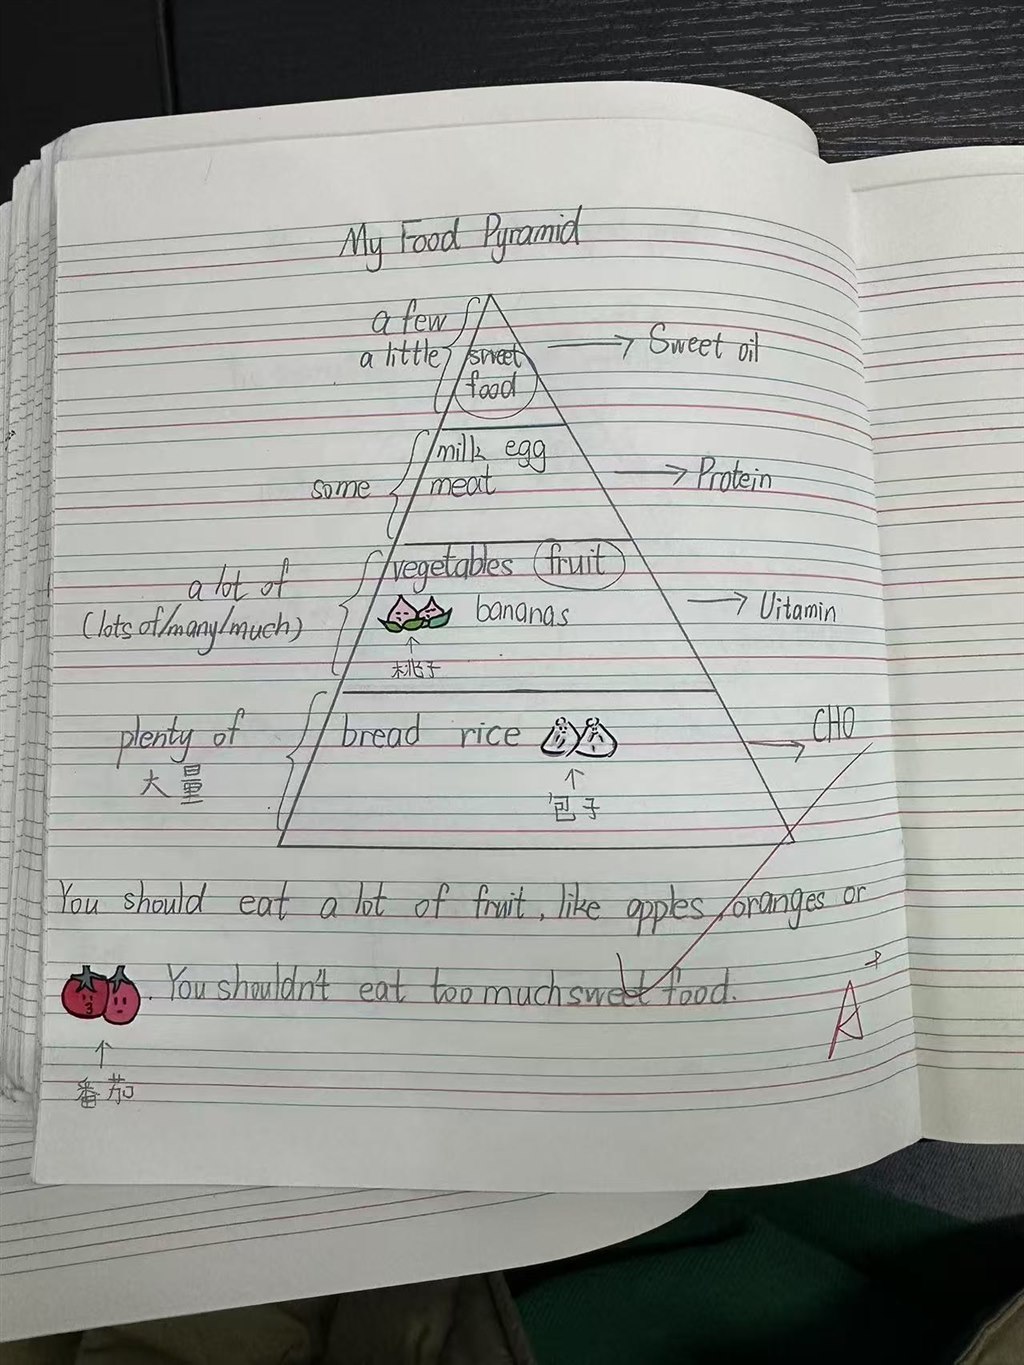 My Food Pyramid
a few
a little
sweet
food
→ Sweet oil
some
milk egg
meat
→ Protein
a lot of
(lots of/many/much)
vegetables fruit
bananas
桃子
→ Vitamin
plenty of
大量
bread rice
包子
→ CHO
You should eat a lot of fruit, like apples, oranges or
. You shouldn't eat too much sweet food.
番茄
A+